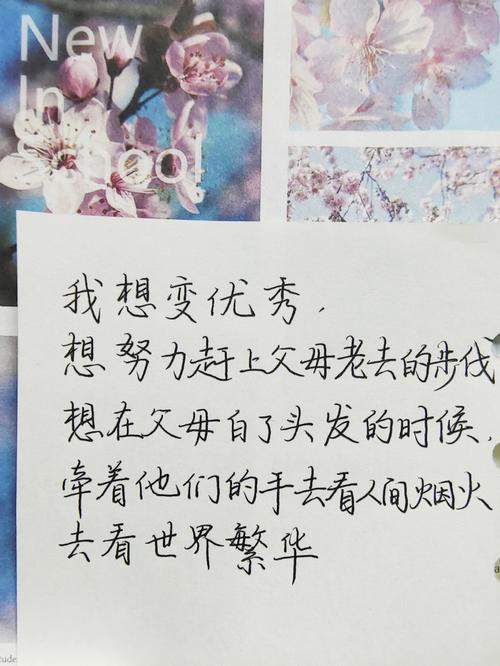 New
In
School
我想变优秀，
想努力赶上父母老去的步伐
想在父母白了头发的时候，
牵着他们的手去看人间烟火
去看世界繁华